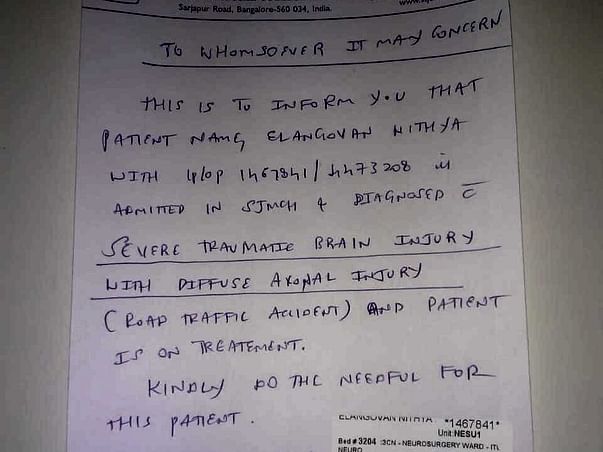 Sarjapur Road, Bangalore-560 034, India.
TO WHOMSOEVER IT MAY CONCERN
THIS IS TO INFORM YOU THAT
PATIENT NAME, ELANGOVAN NITHYA
WITH 1467841/4473208 is
ADMITTED IN SJMCH & DIAGNOSED C̄
SEVERE TRAUMATIC BRAIN INJURY
WITH DIFFUSE AXONAL INJURY
(ROAD TRAFFIC ACCIDENT) AND PATIENT
IS ON TREATEMENT.
KINDLY DO THE NEEDFUL FOR
THIS PATIENT.
ELANGOVAN NITHYA *1467841*
Unit:NESU1
Bed # 3204 :3CN - NEUROSURGERY WARD - ITL
NEURO